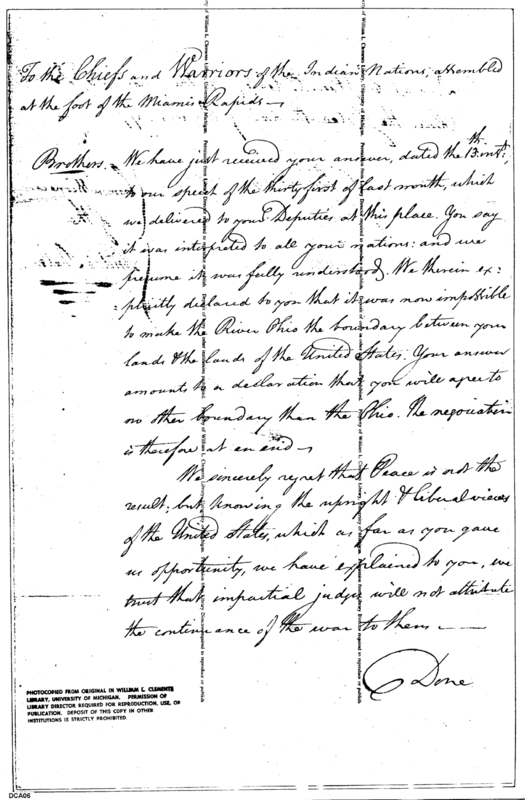 To the Chiefs and Warriors of the Indian Nations, assembled
at the foot of the Miamis Rapids—
Brothers. We have just received your answer, dated the 13th inst.
to our speech of the thirty first of last month, which
we delivered to your Deputies at this place. You say
it was interpreted to all your nations: and we
presume it was fully understood. We therein ex:
plicitly declared to you that it was now impossible
to make the River Ohio the boundary between your
lands & the lands of the United States. Your answer
amounts to a declaration that you will agree to
no other boundary than the Ohio. The negociation
is therefore at an end—
We sincerely regret that Peace is not the
result; but knowing the upright & liberal views
of the United States, which as far as you gave
us opportunity, we have explained to you, we
trust that impartial judges will not attribute
the continuance of the war to them——
Done
PHOTOCOPIED FROM ORIGINAL IN WILLIAM L. CLEMENTS
LIBRARY, UNIVERSITY OF MICHIGAN. PERMISSION OF
LIBRARY DIRECTOR REQUIRED FOR REPRODUCTION, USE, OR
PUBLICATION. DEPOSIT OF THIS COPY IN OTHER
INSTITUTIONS IS STRICTLY PROHIBITED.
DCA06